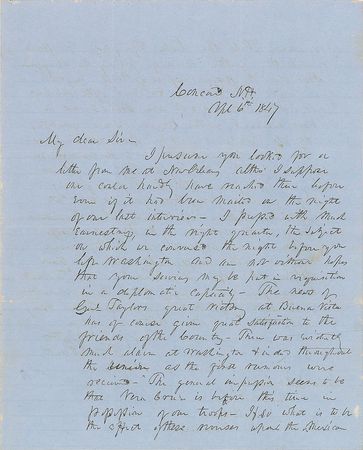 Concord N.H.
Apl 6th 1847
My dear Sir—
I presume you looked for a
letter from me at New Orleans altho' I suppose
one could hardly have reached there before
even if it had been mailed on the night
of our last interview— I pressed with much
earnestness in the right quarter, the subject
on which we conversed the night before you
left Washington and am not without hopes
that your services may be put in requisition
in a diplomatic capacity— The news of
Genl Taylors great victory at Buena Vista
has of course given great satisfaction to the
friends of the Country— There was evidently
much alarm at Washington & indeed throughout
the as the first rumours were
received— The general impression seems to be
that Vera Cruz is before this time in
possession of our troops— If so what is to be
the effect of these reverses upon the Mexican